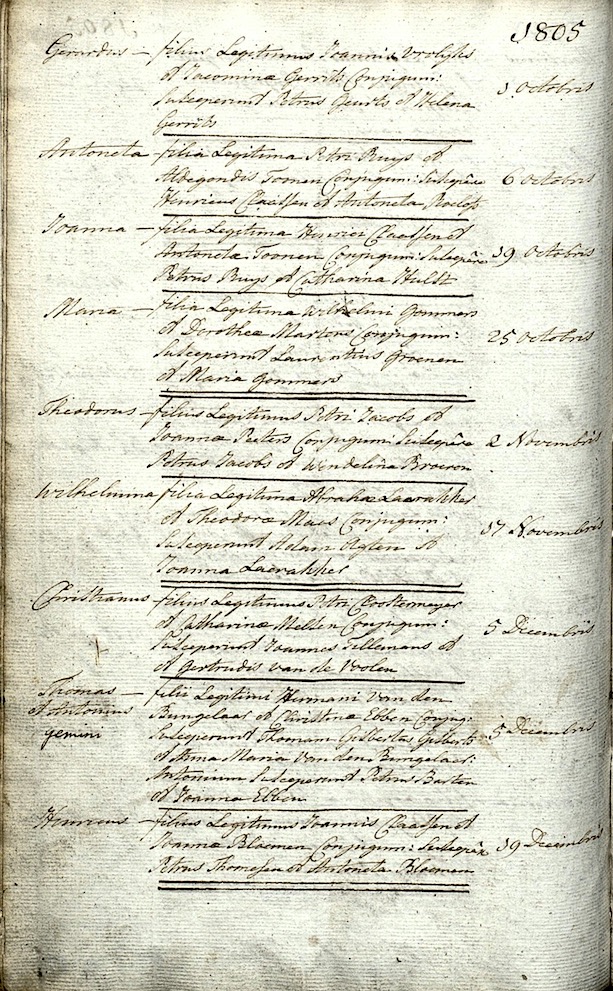 1805
Gerardus — filius Legitimus Joannis Vrolijks
et Jacominæ Gerrits Conjugum:
Susceperunt Petrus Geurts et Helena
Gerrits
1 Octobris
Antoneta — filia Legitima Petri Ruys et
Aldegondis Toonen Conjugum: Suscepêre
Henricus Claassen et Antoneta Roelofs
6 Octobris
Joanna — filia Legitima Henrici Claassen et
Antonetæ Toonen Conjugum: Suscepêre
Petrus Ruys et Catharina Huldt
19 Octobris
Maria — filia Legitima Wilhelmi Gommers
et Dorotheæ Martens Conjugum:
Susceperunt Laurentius Groenen
et Maria Gommers
25 Octobris
Theodorus — filius Legitimus Petri Jacobs et
Joannæ Peeters Conjugum: Suscepêre
Petrus Jacobs et Wendelina Broeren
2 Novembris
Wilhelmina filia Legitima Abrahæ Laerakker
et Theodoræ Maes Conjugum:
Susceperunt Adam Agten et
Joanna Laerakker
17 Novembris
Christianus — filius Legitimus Petri Cloostermeyer
et Catharinæ Melsen Conjugum:
Susceperunt Joannes Tillemans et
et Gertrudis van de Voolen
5 Decembris
Thomas —
et Antonius
gemini
filii Legitimi Hermani van den
Bungelaar et Christinæ Ebben Conjug:
Susceperunt Thomam Gisbertus Gisberts
et Anna Maria van den Bungelaar:
Antonium Susceperunt Petrus Basten
et Joanna Ebben
5 Decembris
Henricus — filius Legitimus Joannis Claassen et
Joannæ Bloemen Conjugum: Suscepêre
Petrus Thomassen et Antoneta Bloemen
19 Decembris